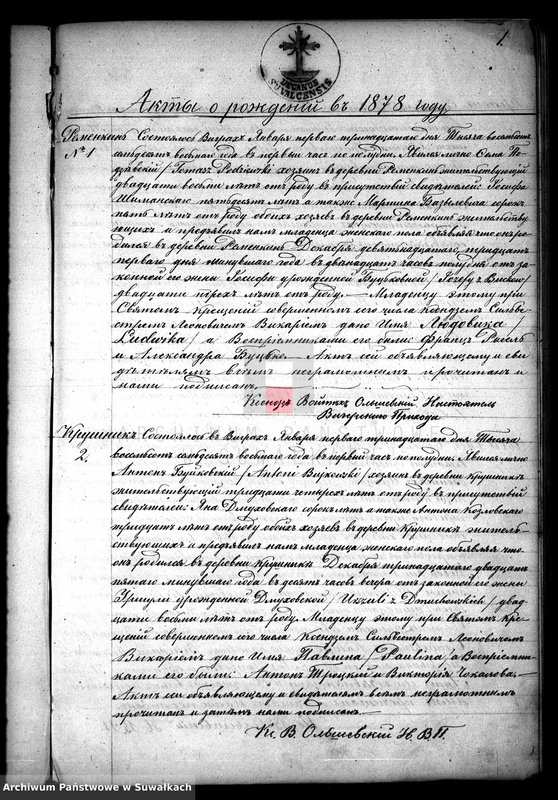 1.
Акты о рожденій въ 1878 году
Ременкинъ Состоялось Виграхъ Января перваго тринадцатаго дня Тысяча восемьсотъ
№ 1 семьдесятъ восьмаго года въ первый часъ по полудни. Явился лично
двадцати восьми лѣтъ отъ роду въ присутствіи свидѣтелей Іосифа
Шиманскаго пятьдесятъ лѣтъ а также Мартина сорокъ
пять лѣтъ отъ роду обоихъ хозяевъ въ деревни Ременкинъ жительству
ющихъ и предъявилъ намъ младенца женскаго пола объявляя что онъ ро
дился въ деревни Ременкинъ Декабря девятнадцатаго, тридцать
перваго дня минувшаго года въ двѣнадцать часовъ полудня отъ за
конной его жены Іосифы урожденной
двадцати трехъ лѣтъ отъ роду. Младенцу этому при
Святомъ крещеніи совершенномъ его числа Ксендзомъ Сильве
стромъ Леоновичемъ Викаріемъ дано Имя Людовика /
Ludwika / а Воспріемниками его были: Францъ
и Александра Буцько. Актъ сей объявляющему и сви
дѣтелямъ всѣмъ неграмотнымъ прочитанъ и
нами подписанъ.
Ксендзъ Войтѣхъ Ольшевскій Настоятель
Вигренскаго Прихода
Крушникъ Состоялось въ Виграхъ Января перваго тринадцатаго дня Тысяча
2. восемьсотъ семьдесятъ восьмаго года въ первый часъ по полудни. Явился лично
Антонъ Буйковскій / Antoni Bujkowski / хозяинъ въ деревни Крушникъ
жительствующій тридцати четырехъ лѣтъ отъ роду въ присутствіи
свидѣтелей Яна Длуховскаго сорокъ лѣтъ а также Антона Козловскаго
тридцать лѣтъ отъ роду обоихъ хозяевъ въ деревни Крушникъ житель
ствующихъ и предъявилъ намъ младенца женскаго пола объявляя что
онъ родился въ деревни Крушникъ Декабря тринадцатаго двадцать
пятаго минувшаго года въ десять часовъ вечера отъ законной его жены
Уршули урожденной Длуховской / Urszuli z Dłuchowskich / двад
цати восьми лѣтъ отъ роду. Младенцу этому при Святомъ кре
щеніи совершенномъ его числа Ксендзомъ Сильвестромъ Леоновичемъ
Викаріемъ дано Имя Павлина / Paulina / а Воспріемни
ками его были: Антонъ Троцкій и Викторія Чокалова.
Актъ сей объявляющему и свидѣтелямъ всѣмъ неграмотнымъ
прочитанъ и затѣмъ нами подписанъ.
Кс. В. Ольшевскій Н. В. П.
Archiwum Państwowe w Suwałkach